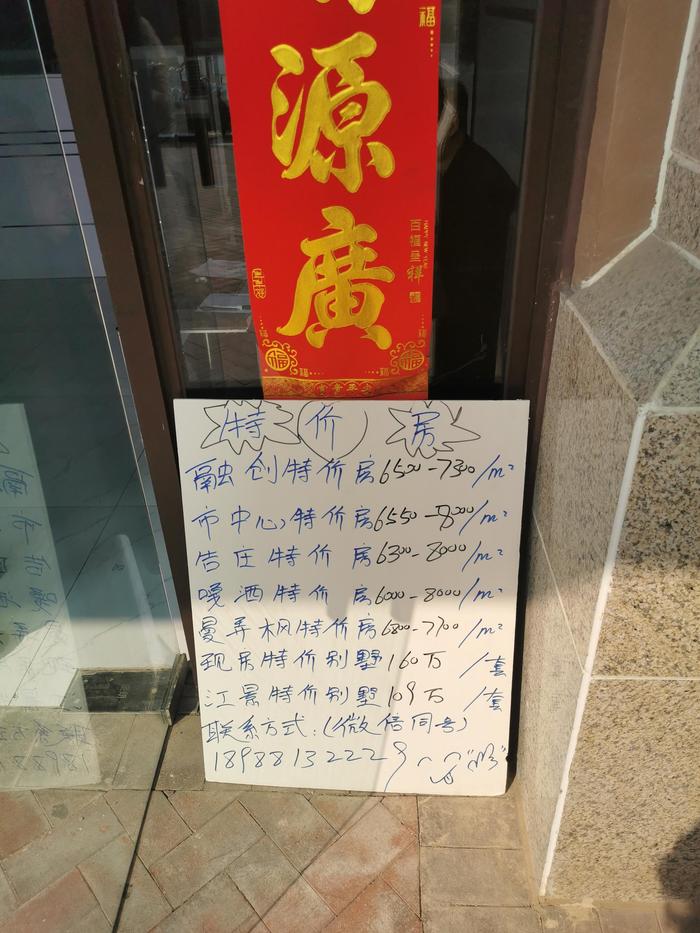 源廣
福
百福呈祥
特价房
融创特价房6500-7300/m²
市中心特价房6550-8000/m²
告庄特价房6300-8000/m²
嘎洒特价房6000-8000/m²
曼弄枫特价房6800-7700/m²
现房特价别墅160万/套
江景特价别墅109万/套
联系方式:(微信同号)
18988132229